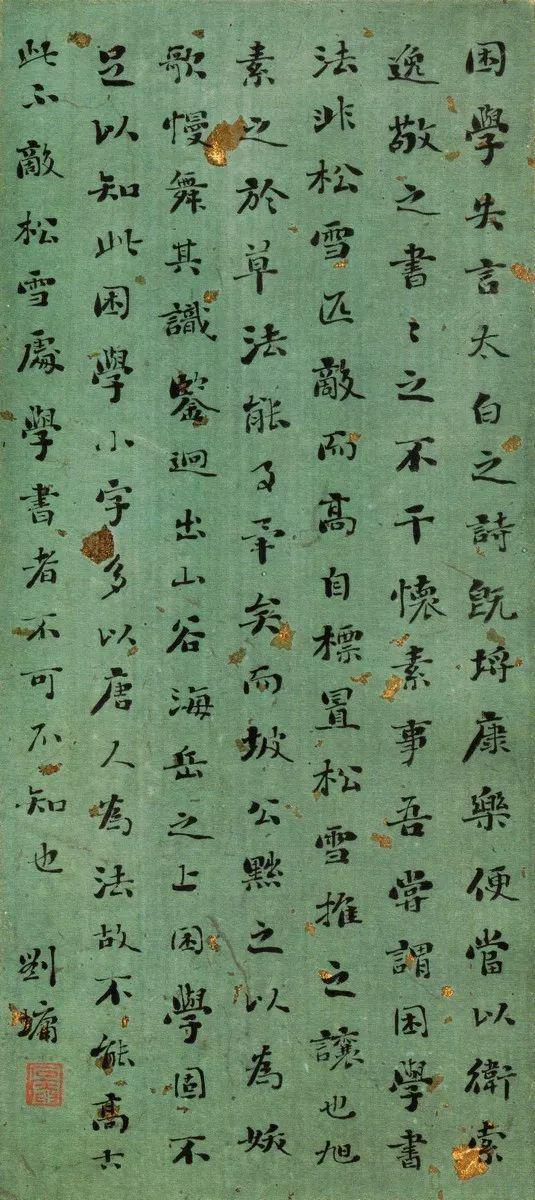 困學失言太白之詩既埒康樂便當以衛索
逸敬之書〻之不干懷素事吾嘗謂困學書
法非松雪匹敵而高自標置松雪推之讓也旭
素之於草法能事矣而坡公黜之以為妖
歌慢舞其識鑒迥出山谷海岳之上困學固不
足以知此困學小字多以唐人為法故不能高古
此不敵松雪處學書者不可不知也
劉墉